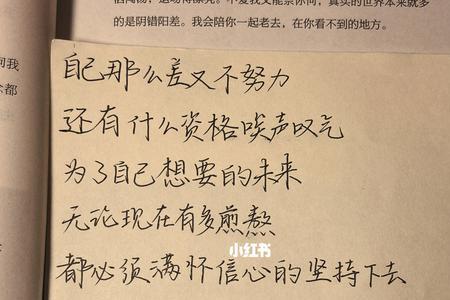 的是阴错阳差。我会陪你一起老去，在你看不到的地方。
自己那么差又不努力
还有什么资格唉声叹气
为了自己想要的未来
无论现在有多煎熬
小红书
都必须满怀信心的坚持下去